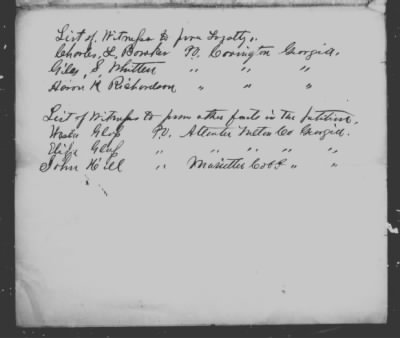 List of Witness to prove Loyalty.
Charles, L. P.O. Covington Georgia.
Giles, S, Whitten " " "
Aaron K Richardson " " "
List of Witness to prove other facts in the Petition.
P.O. Atlanta Fulton Co Georgia.
" " " " "
John Hill " Marietta Cobb " "